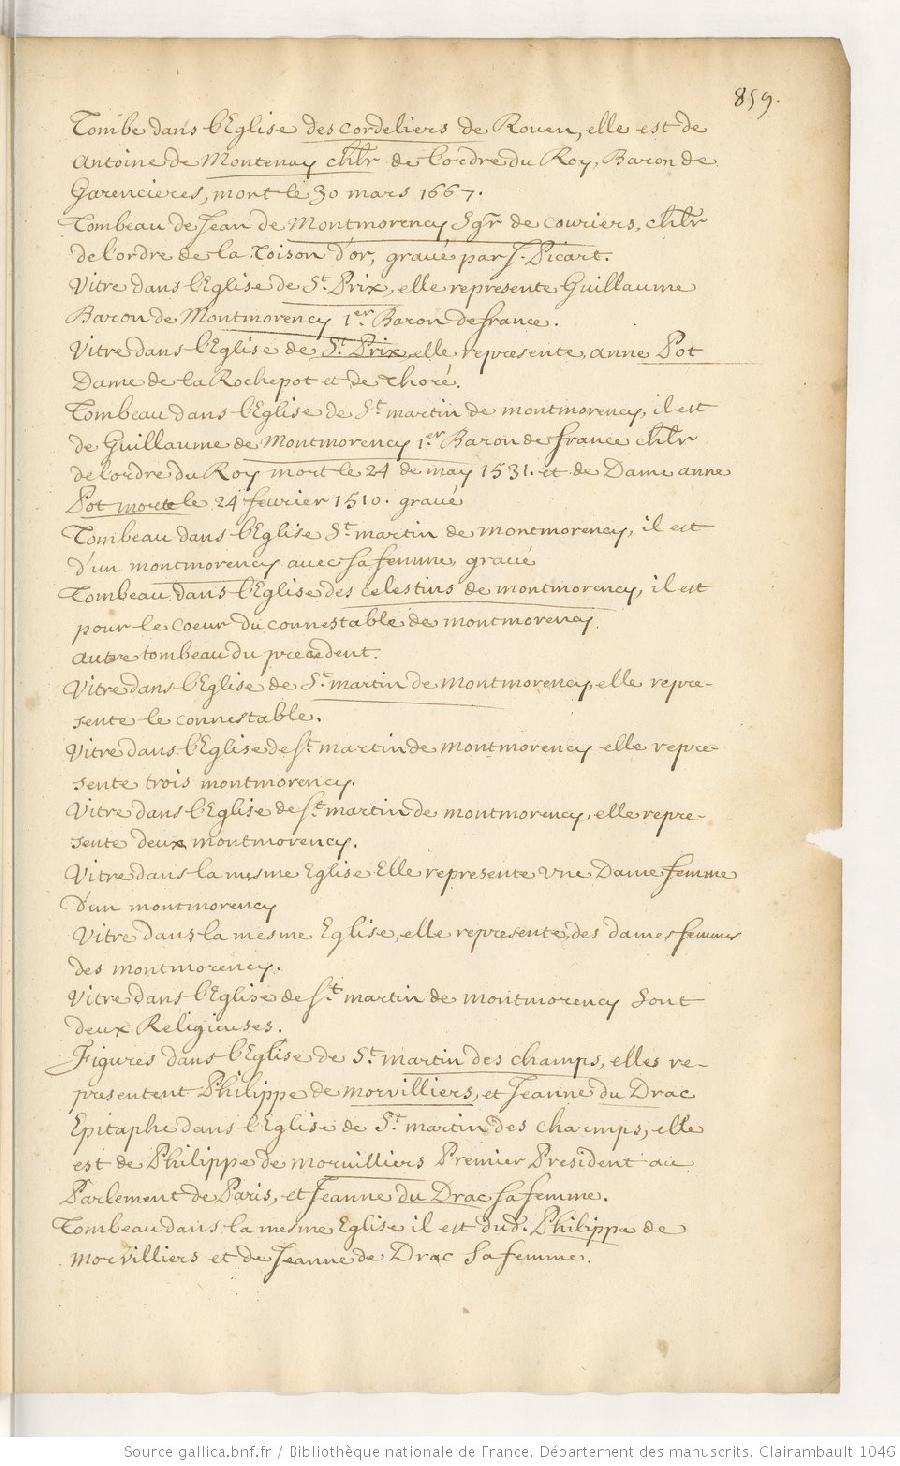 859.
Tombe dans l'Eglise des cordeliers de Rouen, elle est de
Antoine de Montenay chlr de l'ordre du Roy, Baron de
Garencieres, mort le 30 mars 1667.
Tombeau de Jean de Montmorency Sgr de Couriers, chlr
de l'ordre de la Toison d'or, gravé par J. Picart.
Vitre dans l'Eglise de St. Prix, elle represente Guillaume
Baron de Montmorency 1er Baron de france.
Vitre dans l'Eglise de St. Prix, elle represente, anne Pot
Dame de la Rochepot et de Thoré.
Tombeau dans l'Eglise de St martin de montmorency, il est
de Guillaume de Montmorency 1er Baron de france chlr
de l'ordre du Roy mort le 24 de may 1531. et de Dame anne
Pot morte le 24 fevrier 1510. gravé
Tombeau dans l'Eglise St martin de montmorency, il est
d'un montmorency avec sa femme, gravé
Tombeau dans l'Eglise des celestins de montmorency, il est
pour le coeur du connestable de montmorency.
autre tombeau du precedent.
Vitre dans l'Eglise de St. martin de montmorency, elle repre-
sente le connestable.
Vitre dans l'Eglise de St martin de montmorency elle repre-
sente trois montmorency.
Vitre dans l'Eglise de St martin de montmorency, elle repre-
sente deux montmorency.
Vitre dans la mesme Eglise Elle represente une Dame femme
d'un montmorency
Vitre dans la mesme Eglise, elle represente des dames femmes
des montmorency.
Vitre dans l'Eglise de St martin de montmorency Sont
deux Religieuses.
Figures dans l'Eglise de St. martin des champs, elles re-
presentent Philippe de morvilliers, et Jeanne du Drac
Epitaphe dans l'Eglise de St. martin des champs, elle
est de Philippe de morvilliers Premier President au
Parlement de Paris, et Jeanne du Drac sa femme.
Tombeau dans la mesme Eglise il est dud. Philippe de
morvilliers et de Jeanne de Drac Sa femme.
Source gallica.bnf.fr / Bibliothèque nationale de France. Département des manuscrits. Clairambault 1046